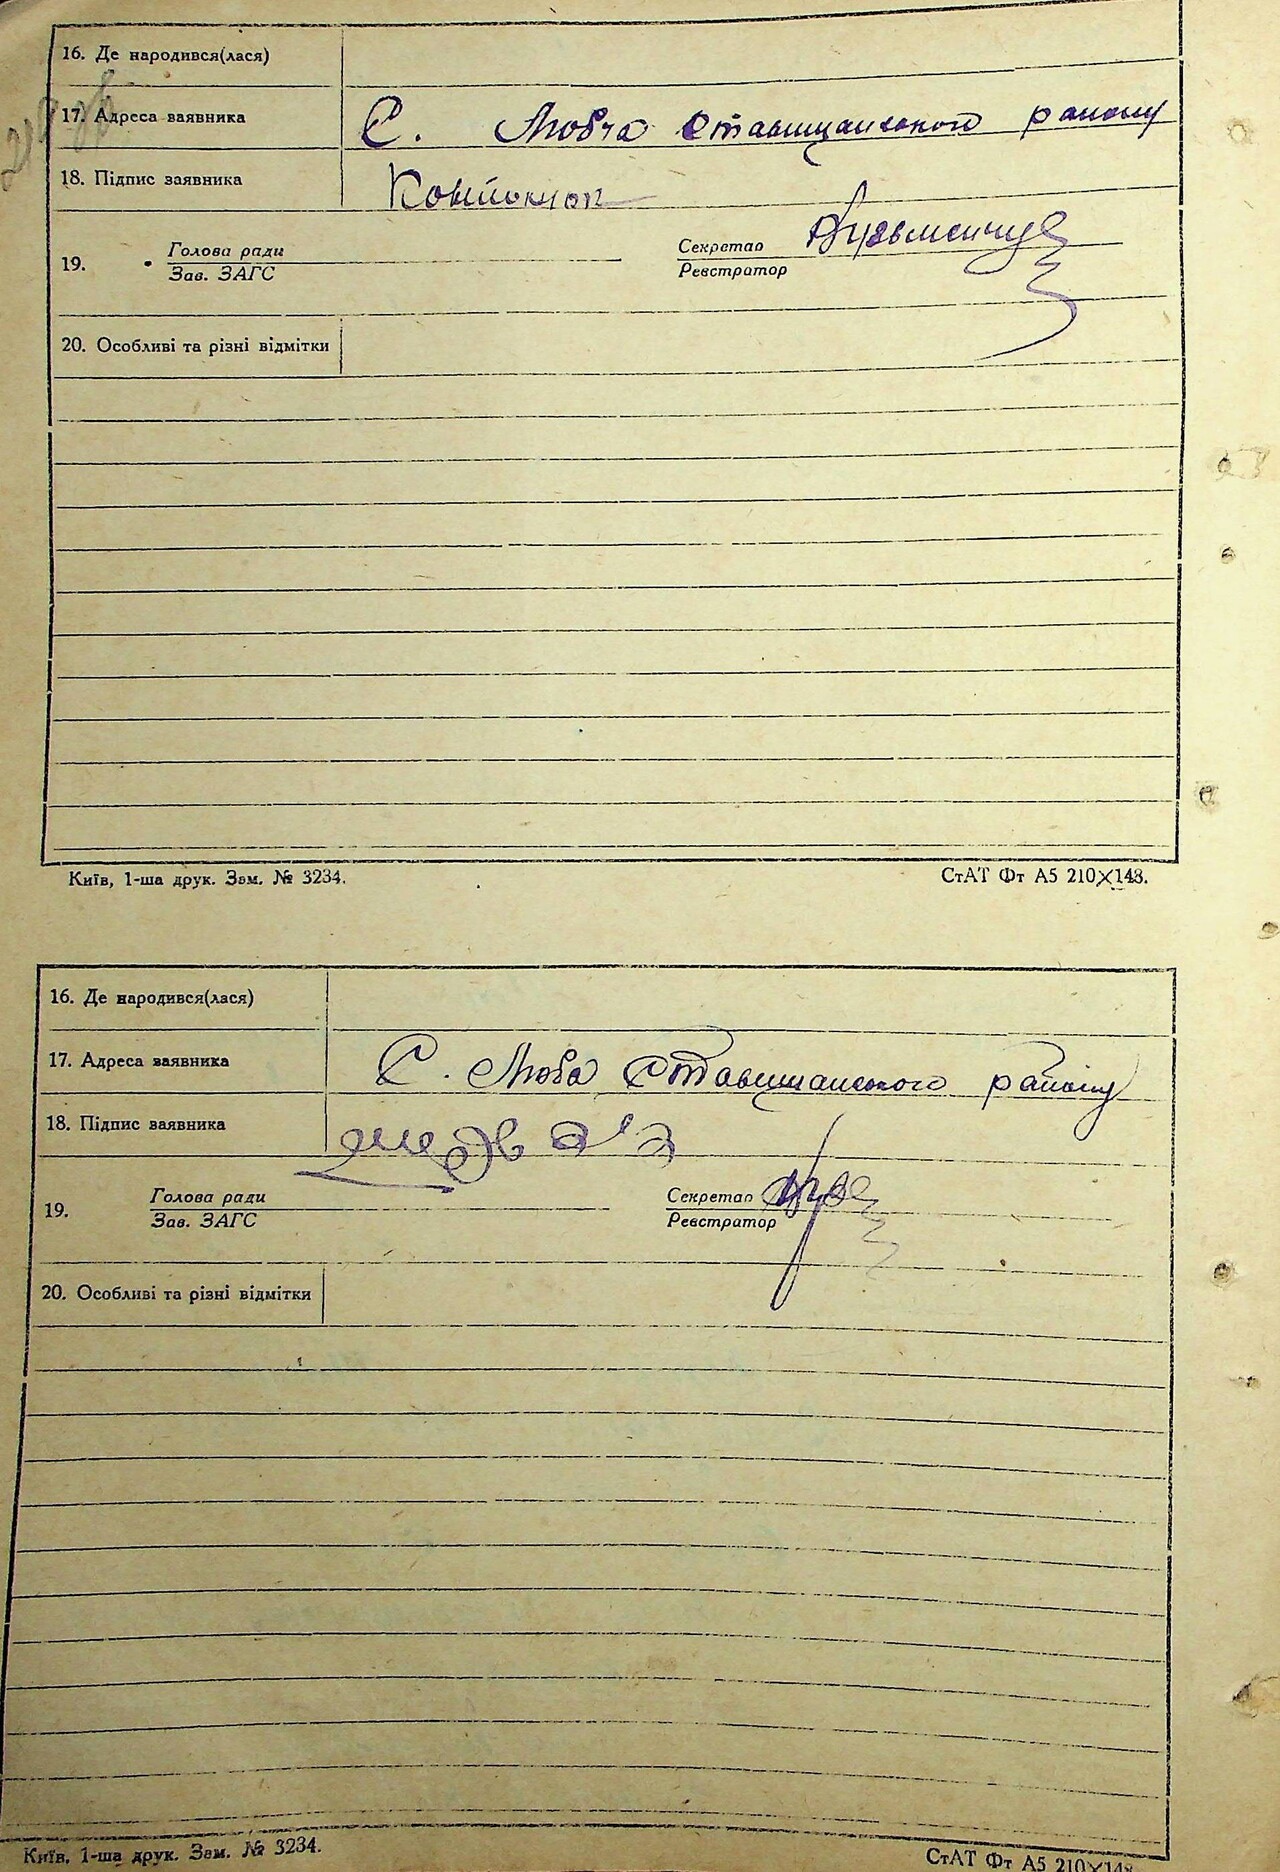 16. Де народився(лася)
17. Адреса заявника С. Любча Ставищанського району
18. Підпис заявника
19. Голова ради Секретар
Зав. ЗАГС Реєстратор
20. Особливі та різні відмітки
Київ, 1-ша друк. Зам. № 3234. СтАТ Фт А5 210×148.
16. Де народився(лася)
17. Адреса заявника С. Люба Ставищанського району
18. Підпис заявника
19. Голова ради Секретар
Зав. ЗАГС Реєстратор
20. Особливі та різні відмітки
Київ, 1-ша друк. Зам. № 3234. СтАТ Фт А5 210×14